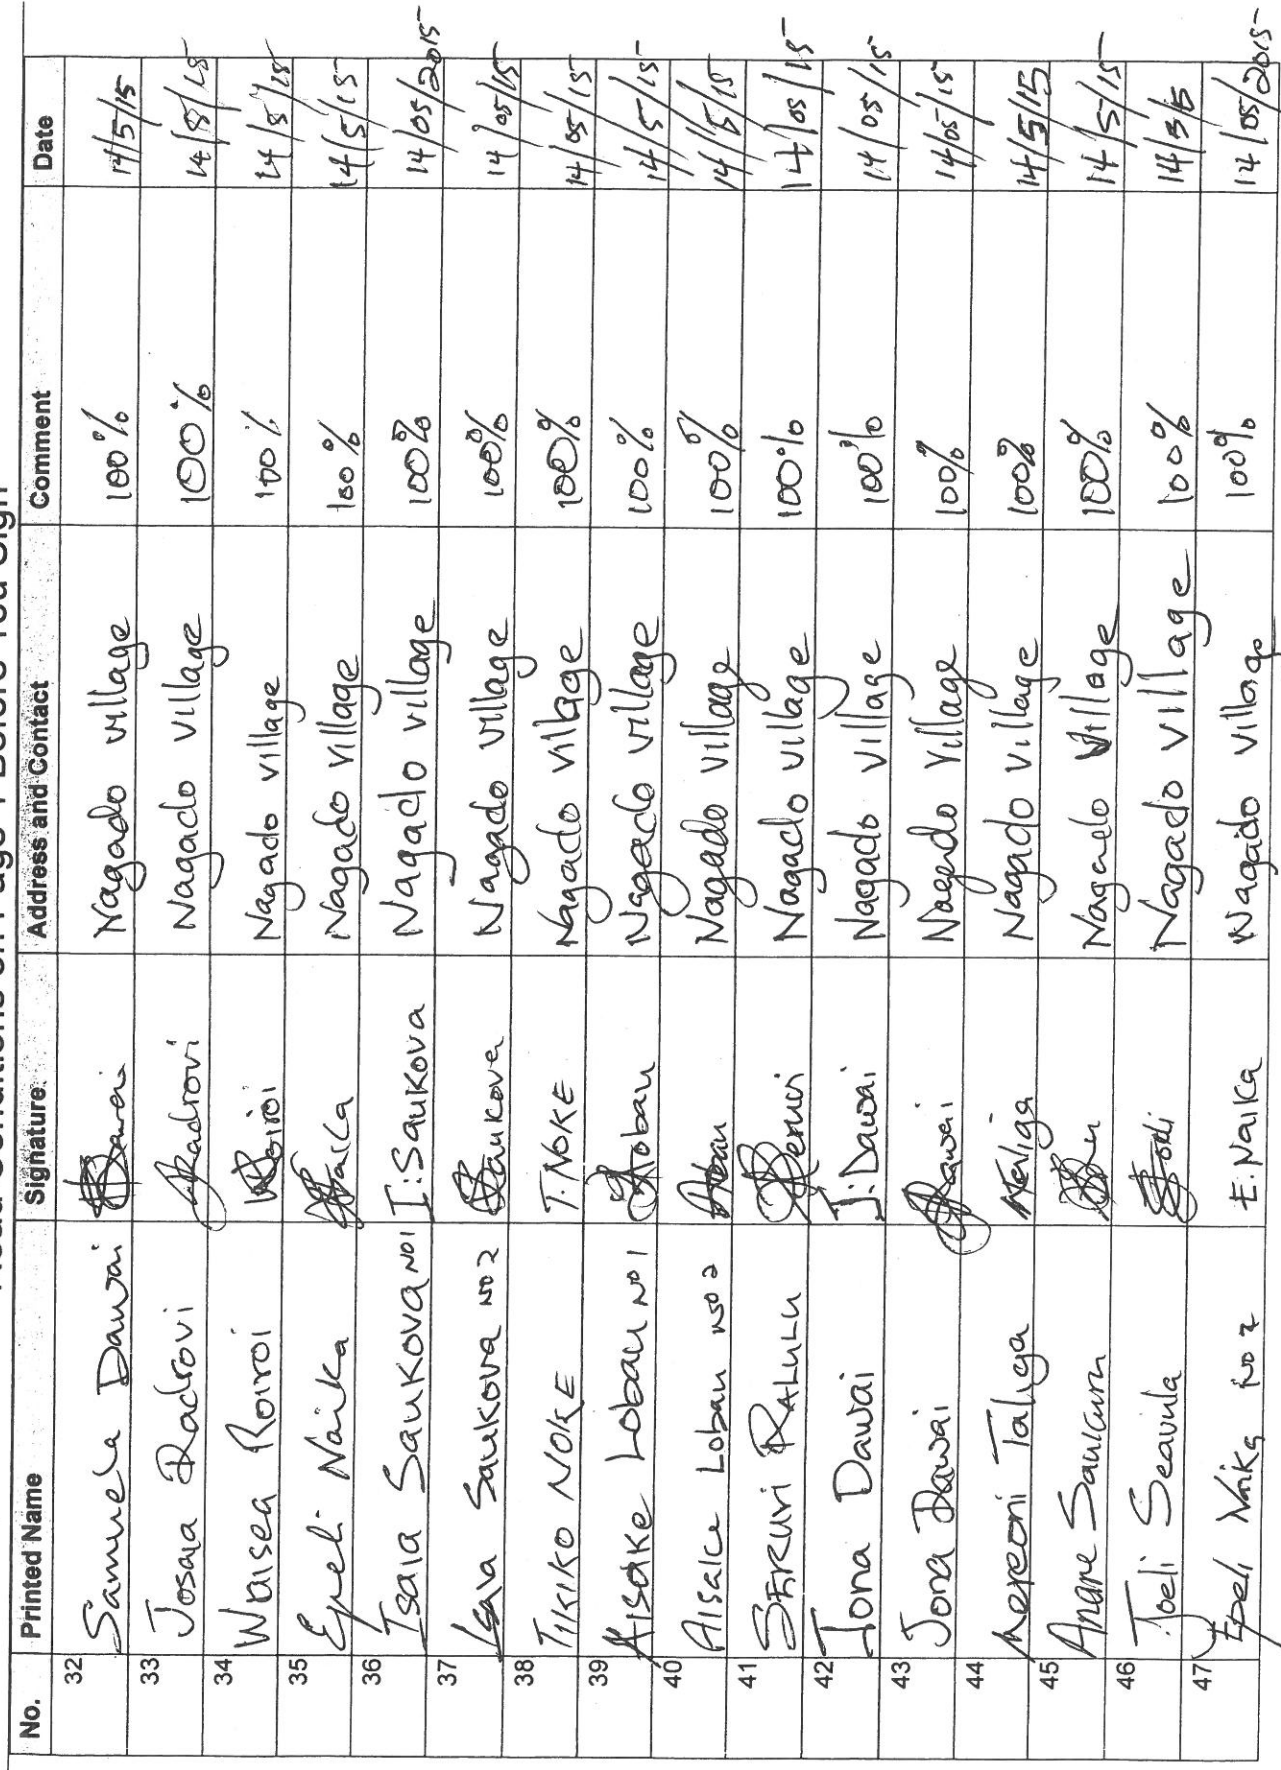 Conditions on Page 1 Before You Sign
No. Printed Name Signature Address and Contact Comment Date
32 Samuela Dawai Dawai Nagado village 100% 14/5/15
33 Josaia Radrovi Radrovi Nagado village 100% 14/5/15
34 Waisea Roiroi Roiroi Nagado village 100% 14/5/15
35 Epeli Naika Nagado village 100% 14/5/15
36 Isaia Saukova NO1 I. Saukova Nagado village 100% 14/05/2015
37 Isaia Saukova NO 2 Saukova Nagado village 100% 14/05/15
38 TIKIKO NOKE T. NOKE Nagado village 100% 14/05/15
39 Aisake Lobau NO 1 Lobau Nagado village 100% 14/5/15
40 Aisake Lobau NO 2 Nagado village 100% 14/5/15
41 SERUVI RALULU Seruvi Nagado village 100% 14/05/15
42 Jona Dawai J. Dawai Nagado village 100% 14/05/15
43 Jona Dawai Dawai Nagado village 100% 14/05/15
44 Mereoni Taliga Nagado village 100% 14/5/15
45 Anare Saukuru Nagado village 100% 14/5/15
46 Joeli Seavula Joeli Nagado village 100% 14/5/5
47 Epeli Naika NO 2 E. Naika Nagado village 100% 14/05/2015